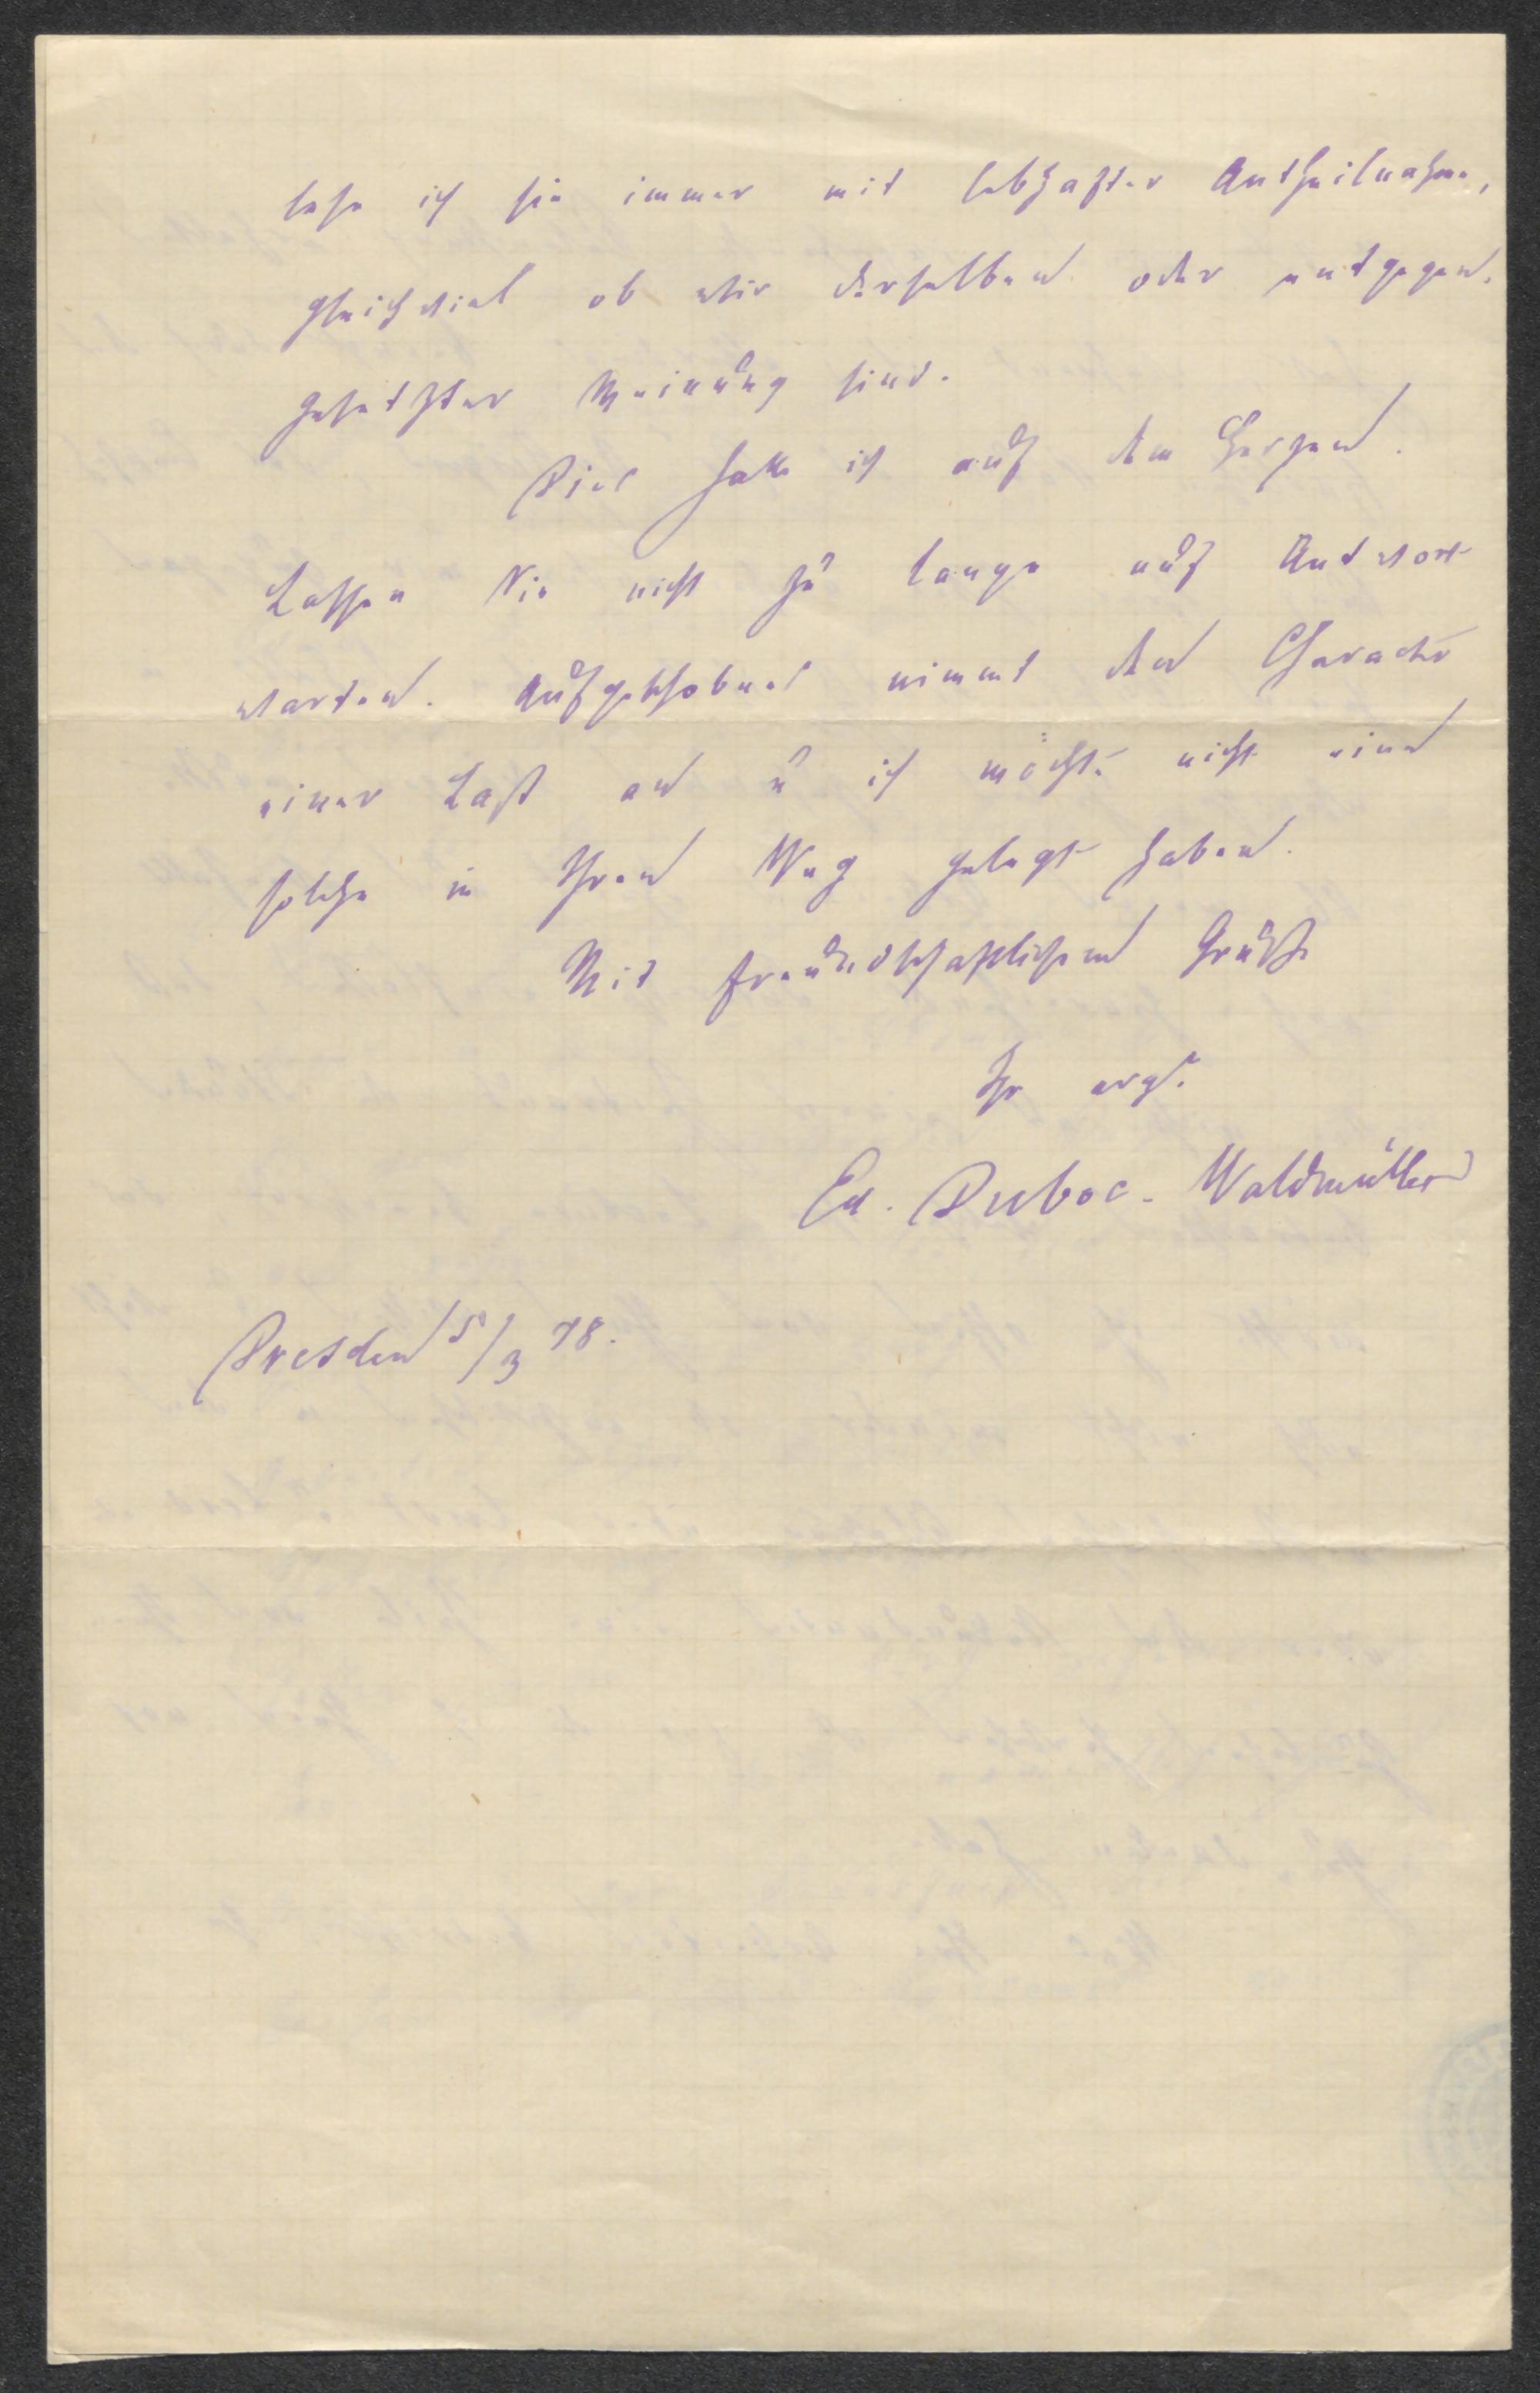 lese ich sie immer mit lebhafter Antheilnahme,
gleichviel ob wir derselben oder entgegen-
gesetzter Meinung sind.
Dies hatte ich auf dem Herzen.
Lassen Sie nicht zu lange auf Antwort
warten. Aufgeschobnes nimmt den Character
einer Last an u ich möchte nicht eine
solche in Ihren Weg gelegt haben.
Mit freundschaftlichem Gruße
Ihr erg.
Ed. Duboc-Waldmüller
Dresden 5/3 78.